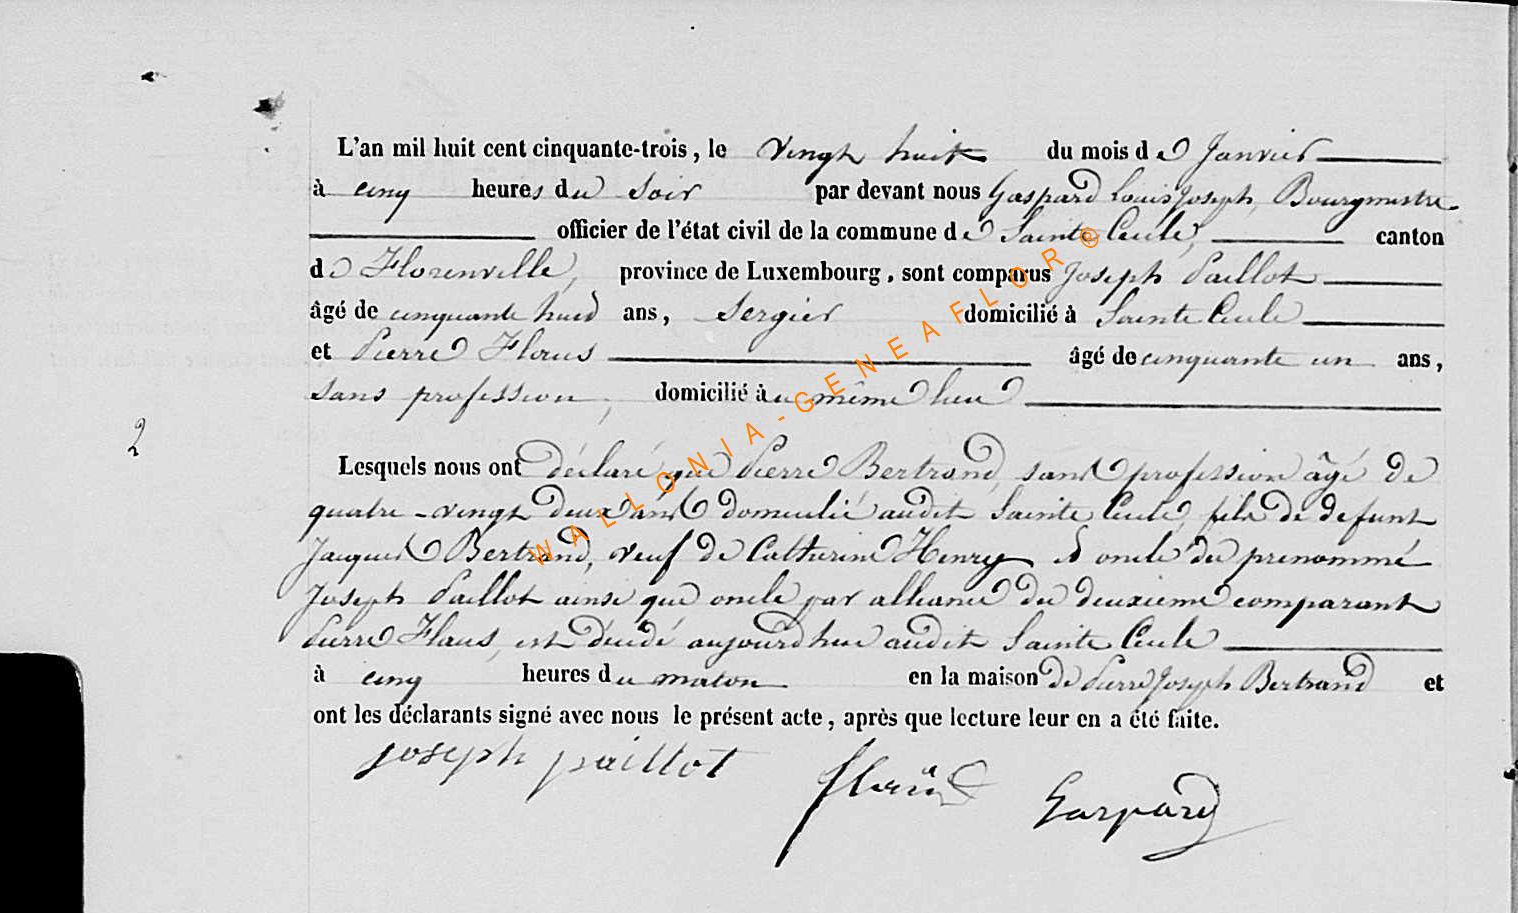 L'an mil huit cent cinquante-trois, le vingt huit du mois de Janvier
à cinq heures du Soir par devant nous Gaspard Louis Joseph, Bourgmestre
officier de l'état civil de la commune de Sainte Cecile, canton
de Florenville, province de Luxembourg, sont comparus Joseph Paillot
âgé de cinquante huit ans, Sergier domicilié à Sainte Cecile
et Pierre Flaus âgé de cinquante un ans,
sans profession, domicilié au même lieu
2
Lesquels nous ont déclaré que Pierre Bertrand, sans profession âgé de
quatre-vingt deux ans domicilié audit Sainte Cecile, fils de defunt
Jacques Bertrand, veuf de Catherine Henry & oncle du prenommé
Joseph Paillot ainsi que oncle par alliance du deuxieme comparant
Pierre Flaus, est décédé aujourd'hui audit Sainte Cecile
à cinq heures du matin en la maison de Pierre Joseph Bertrand et
ont les déclarants signé avec nous le présent acte, après que lecture leur en a été faite.
joseph paillot Gaspard
WALLONIA-GENEAFLOR©